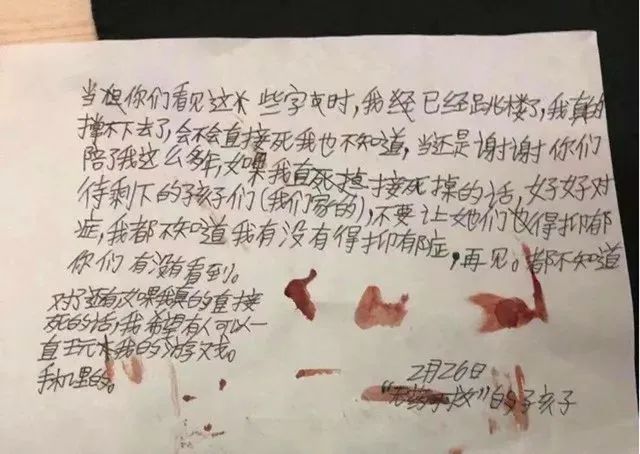 当你们看见这些字时，我经已经跳楼了，我真的
撑不下去了，会不会直接死我也不知道，当还是谢谢你们
陪了我这么多年，如果我直死掉接死掉的话，好好对
待剩下的孩子们（我们家的），不要让她们也得抑郁
症，我都不知道我有没有得抑郁症，再见。都不知道
你们有没有看到。
对了还有如果我真的直接
死的话，我希望有人可以一
直玩我的游戏。
手机里的。
2月26日
“无药可救”的孩子